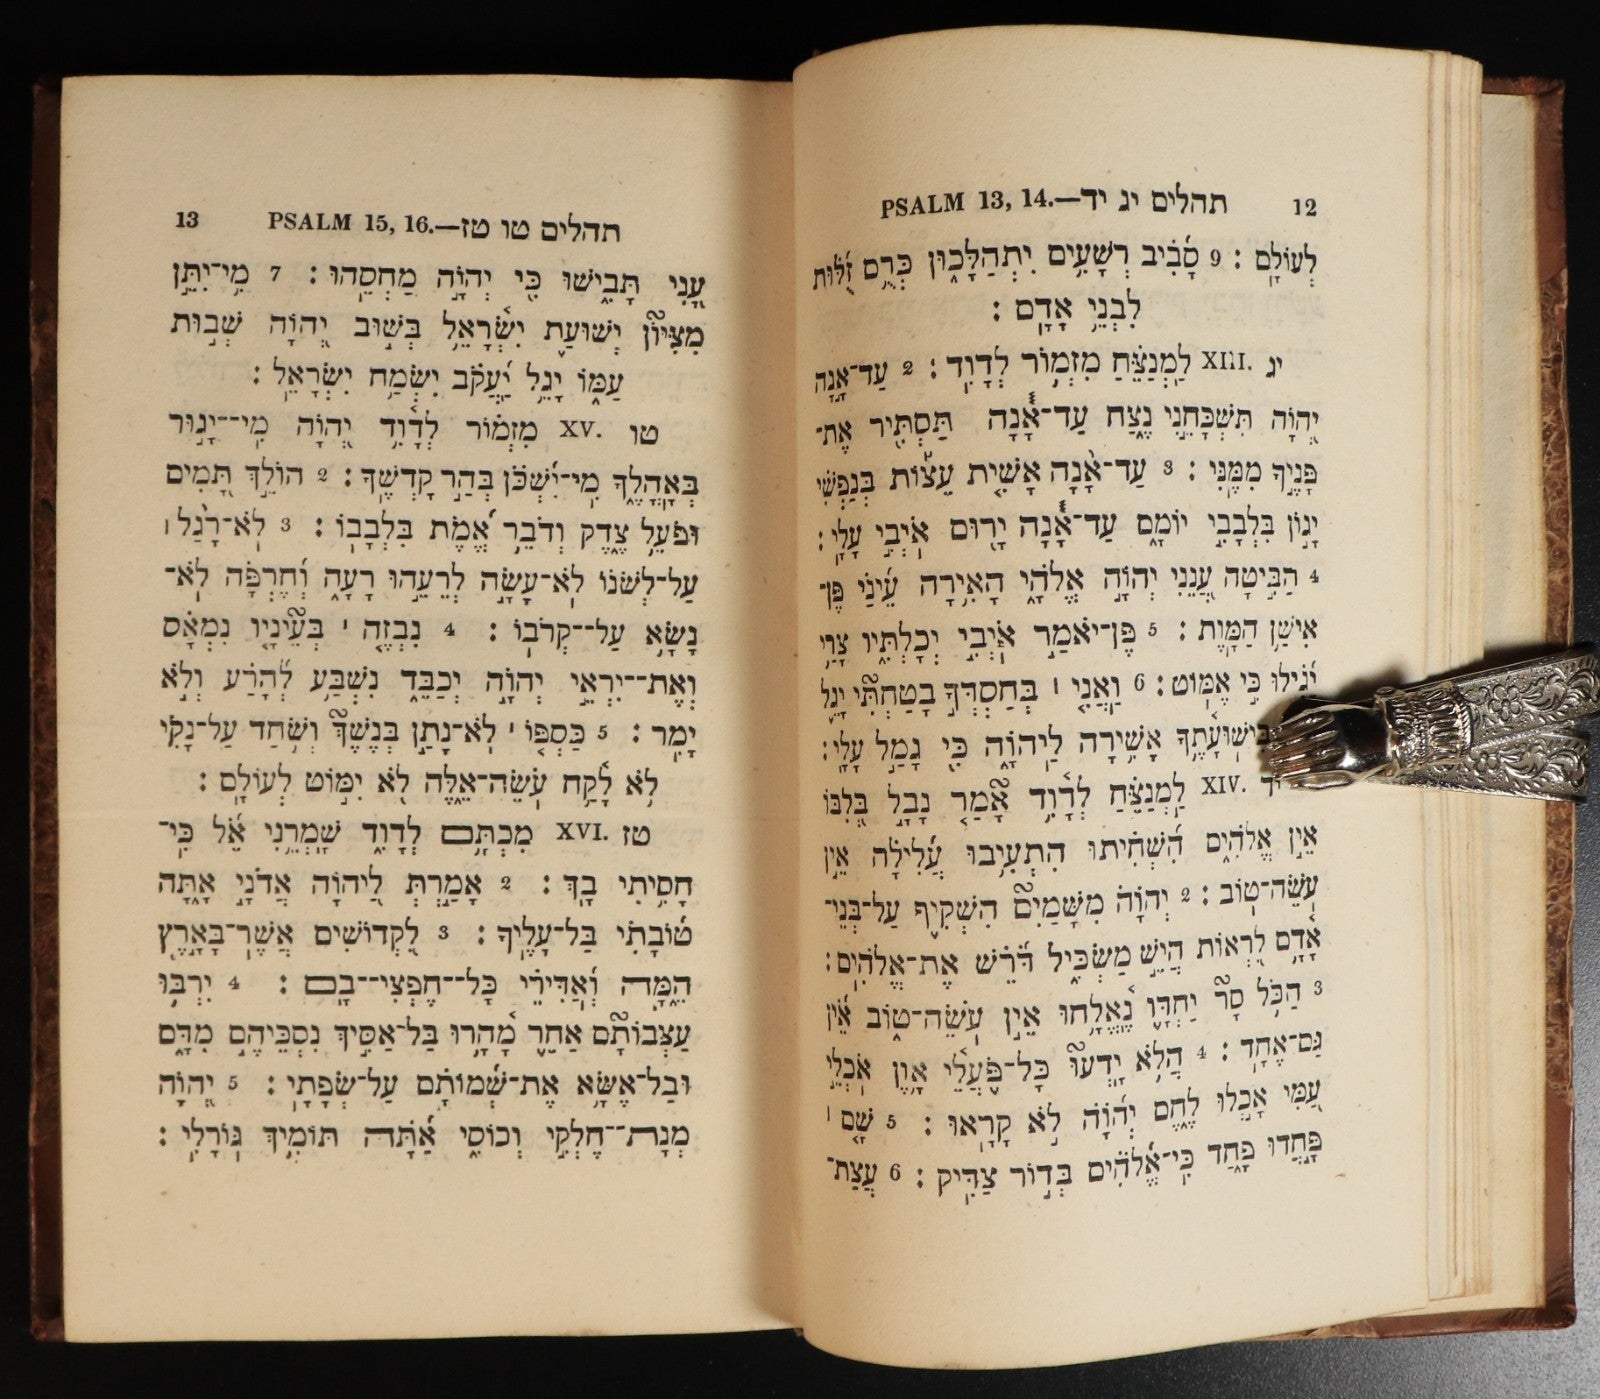 12 תהלים יג יד—.PSALM 13, 14
לְעוֹלָם׃ 9 סָבִיב רְשָׁעִים יִתְהַלָּכוּן כְּרֻם זֻלּוּת
לִבְנֵי אָדָם׃
יג XIII. לַמְנַצֵּחַ מִזְמוֹר לְדָוִד׃ 2 עַד־אָנָה
יְהוָֹה תִּשְׁכָּחֵנִי נֶצַח עַד־אָנָה תַּסְתִּיר אֶת־
פָּנֶיךָ מִמֶּנִּי׃ 3 עַד־אָנָה אָשִׁית עֵצוֹת בְּנַפְשִׁי
יָגוֹן בִּלְבָבִי יוֹמָם עַד־אָנָה יָרוּם אֹיְבִי עָלָי׃
4 הַבִּיטָה עֲנֵנִי יְהוָֹה אֱלֹהָי הָאִירָה עֵינַי פֶּן־
אִישַׁן הַמָּוֶת׃ 5 פֶּן־יֹאמַר אֹיְבִי יְכָלְתִּיו צָרַי
יָגִילוּ כִּי אֶמּוֹט׃ 6 וַאֲנִי ׀ בְּחַסְדְּךָ בָטַחְתִּי יָגֵל
בִּישׁוּעָתֶךָ אָשִׁירָה לַיהוָֹה כִּי גָמַל עָלָי׃
יד XIV. לַמְנַצֵּחַ לְדָוִד אָמַר נָבָל בְּלִבּוֹ
אֵין אֱלֹהִים הִשְׁחִיתוּ הִתְעִיבוּ עֲלִילָה אֵין
עֹשֵׂה־טוֹב׃ 2 יְהוָֹה מִשָּׁמַיִם הִשְׁקִיף עַל־בְּנֵי־
אָדָם לִרְאוֹת הֲיֵשׁ מַשְׂכִּיל דֹּרֵשׁ אֶת־אֱלֹהִים׃
3 הַכֹּל סָר יַחְדָּו נֶאֱלָחוּ אֵין עֹשֵׂה־טוֹב אֵין
גַּם־אֶחָד׃ 4 הֲלֹא יָדְעוּ כָּל־פֹּעֲלֵי אָוֶן אֹכְלֵי
עַמִּי אָכְלוּ לֶחֶם יְהוָֹה לֹא קָרָאוּ׃ 5 שָׁם ׀
פָּחֲדוּ פָחַד כִּי־אֱלֹהִים בְּדוֹר צַדִּיק׃ 6 עֲצַת־
13 תהלים טו טז—.PSALM 15, 16
עָנִי תָבִישׁוּ כִּי יְהוָֹה מַחְסֵהוּ׃ 7 מִי־יִתֵּן
מִצִּיּוֹן יְשׁוּעַת יִשְׂרָאֵל בְּשׁוּב יְהוָֹה שְׁבוּת
עַמּוֹ יָגֵל יַעֲקֹב יִשְׂמַח יִשְׂרָאֵל׃
טו XV. מִזְמוֹר לְדָוִד יְהוָֹה מִי־־יָגוּר
בְּאָהֳלֶךָ מִי־יִשְׁכֹּן בְּהַר קָדְשֶׁךָ׃ 2 הוֹלֵךְ תָּמִים
וּפֹעֵל צֶדֶק וְדֹבֵר אֱמֶת בִּלְבָבוֹ׃ 3 לֹא־רָגַל ׀
עַל־לְשֹׁנוֹ לֹא־עָשָׂה לְרֵעֵהוּ רָעָה וְחֶרְפָּה לֹא־
נָשָׂא עַל־־קְרֹבוֹ׃ 4 נִבְזֶה ׀ בְּעֵינָיו נִמְאָס
וְאֶת־־יִרְאֵי יְהוָֹה יְכַבֵּד נִשְׁבַּע לְהָרַע וְלֹא
יָמִר׃ 5 כַּסְפּוֹ ׀ לֹא־נָתַן בְּנֶשֶׁךְ וְשֹׁחַד עַל־נָקִי
לֹא לָקָח עֹשֵׂה־אֵלֶּה לֹא יִמּוֹט לְעוֹלָם׃
טז XVI. מִכְתָּם לְדָוִד שָׁמְרֵנִי אֵל כִּי־
חָסִיתִי בָךְ׃ 2 אָמַרְתְּ לַיהוָֹה אֲדֹנָי אָתָּה
טוֹבָתִי בַּל־עָלֶיךָ׃ 3 לִקְדוֹשִׁים אֲשֶׁר־בָּאָרֶץ
הֵמָּה וְאַדִּירֵי כָּל־־חֶפְצִי־־בָם׃ 4 יִרְבּוּ
עַצְּבוֹתָם אַחֵר מָהָרוּ בַּל־אַסִּיךְ נִסְכֵּיהֶם מִדָּם
וּבַל־אֶשָּׂא אֶת־שְׁמוֹתָם עַל־שְׂפָתָי׃ 5 יְהוָֹה
מְנָת־־חֶלְקִי וְכוֹסִי אַתָּה תּוֹמִיךְ גּוֹרָלִי׃